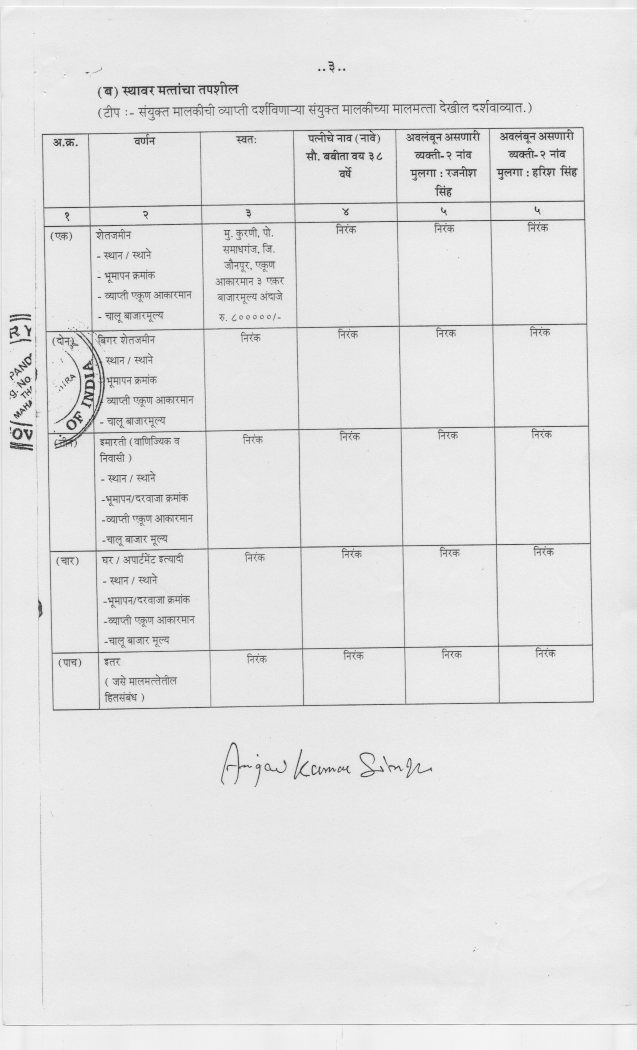 ..३..
(ब) स्थावर मत्तांचा तपशील
(टीप :- संयुक्त मालकीची व्याप्ती दर्शविणाऱ्या संयुक्त मालकीच्या मालमत्ता देखील दर्शवाव्यात.)
अ.क्र. वर्णन स्वतः पत्नीचे नाव (नावे) अवलंबून असणारी अवलंबून असणारी
सौ. बबीता वय ३८ व्यक्ती-२ नांव व्यक्ती-२ नांव
वर्षे मुलगा : रजनीश मुलगा : हरिश सिंह
सिंह
१ २ ३ ४ ५ ५
(एक) शेतजमीन मु. कुरणी, पो. निरंक निरंक निरंक
- स्थान / स्थाने समाधगंज, जि.
- भूमापन क्रमांक जौनपूर, एकूण
आकारमान ३ एकर
- व्याप्ती एकूण आकारमान बाजारमूल्य अंदाजे
- चालू बाजारमूल्य रु. ८०००००/-
(दोन) बिगर शेतजमीन निरंक निरंक निरंक निरंक
- स्थान / स्थाने
- भूमापन क्रमांक
- व्याप्ती एकूण आकारमान
- चालू बाजारमूल्य
OF INDIA
(तीन) इमारती (वाणिज्यिक व निरंक निरंक निरक निरंक
निवासी )
- स्थान / स्थाने
-भूमापन/दरवाजा क्रमांक
-व्याप्ती एकूण आकारमान
-चालू बाजार मूल्य
(चार) घर / अपार्टमेंट इत्यादी निरंक निरंक निरक निरंक
- स्थान / स्थाने
-भूमापन/दरवाजा क्रमांक
-व्याप्ती एकूण आकारमान
-चालू बाजार मूल्य
(पाच) इतर निरंक निरंक निरक निरंक
( जसे मालमत्तेतील
हितसंबंध )
Kumar Singh